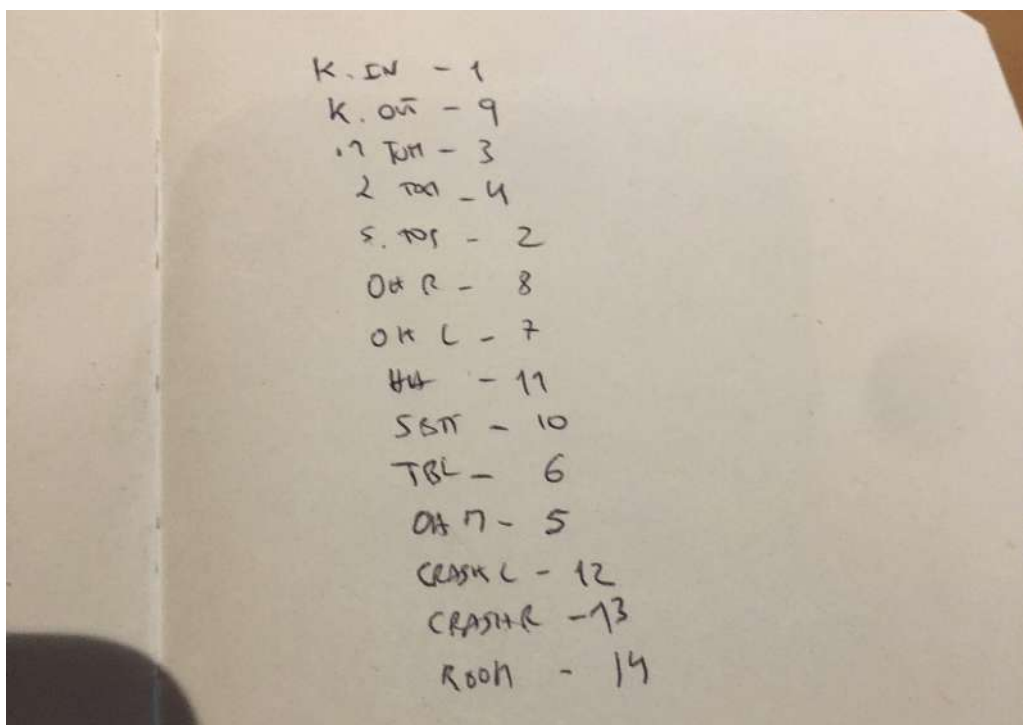 K. IN - 1
K. OUT - 9
.1 TOM - 3
2 TOM - 4
S. TOP - 2
OH R - 8
OH L - 7
HH - 11
SBTT - 10
TBL - 6
OH M - 5
CRASH L - 12
CRASH R - 13
ROOM - 14